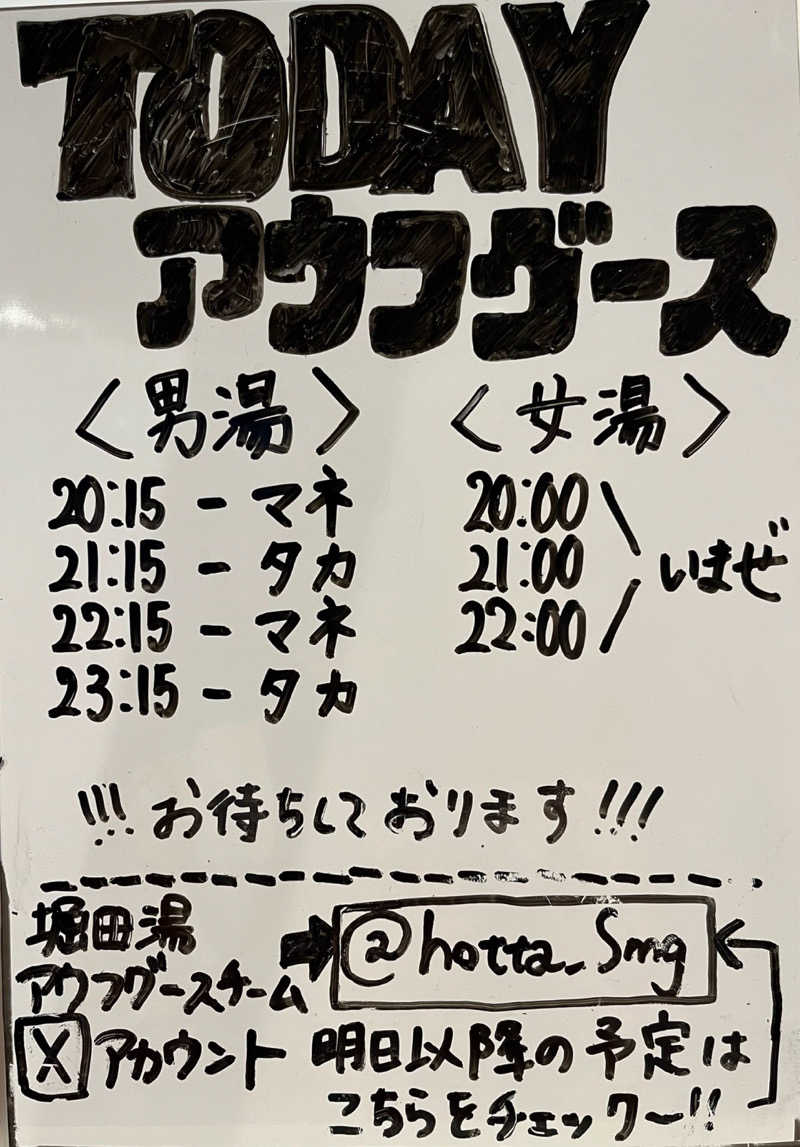 TODAY
アウフグース
〈男湯〉
20:15 - マネ
21:15 - タカ
22:15 - マネ
23:15 - タカ
〈女湯〉
20:00
21:00
22:00
いまぜ
!!!お待ちしております!!!
堀田湯
アウフグースチーム
Xアカウント
@hotta_smg
明日以降の予定は
こちらをチェックー!!